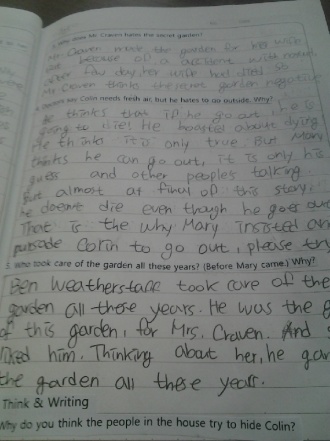 3. Why does Mr. Craven hates the secret garden?
Mr. Craven made the garden for her wife
but because of a accident with
after few day, her wife had died so
Mr. Craven thinks the secret garden negative
4. Person say Colin needs fresh air, but he hates to go outside. Why?
He thinks that if he go out, he is
going to die! He about dying
He think it is only true. But Mary
thinks he can go out, it is only his
guess and other people's talking.
But almost at final of this story,
he doesn't die even though he goes out
That is the why Mary insisted and
Colin to go out, please try
5. Who took care of the garden all these years? (Before Mary came.) Why?
Ben Weatherstaff took care of the
garden all these years. He was the g
of this garden, for Mrs. Craven. And s
liked him. Thinking about her, he gar
the garden all these years.
Think & Writing
Why do you think the people in the house try to hide Colin?